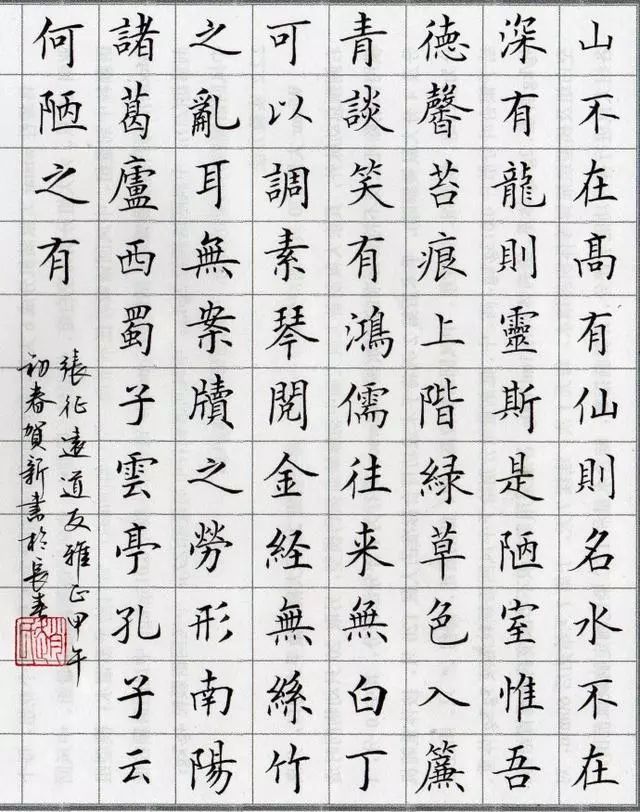 山不在髙有仙則名水不在
深有龍則靈斯是陋室惟吾
德馨苔痕上階緑草色入簾
青談笑有鴻儒往来無白丁
可以調素琴閲金経無絲竹
之亂耳無案牘之勞形南陽
諸葛廬西蜀子雲亭孔子云
何陋之有
張征遠道友雅正甲午
初春賀新書於長春